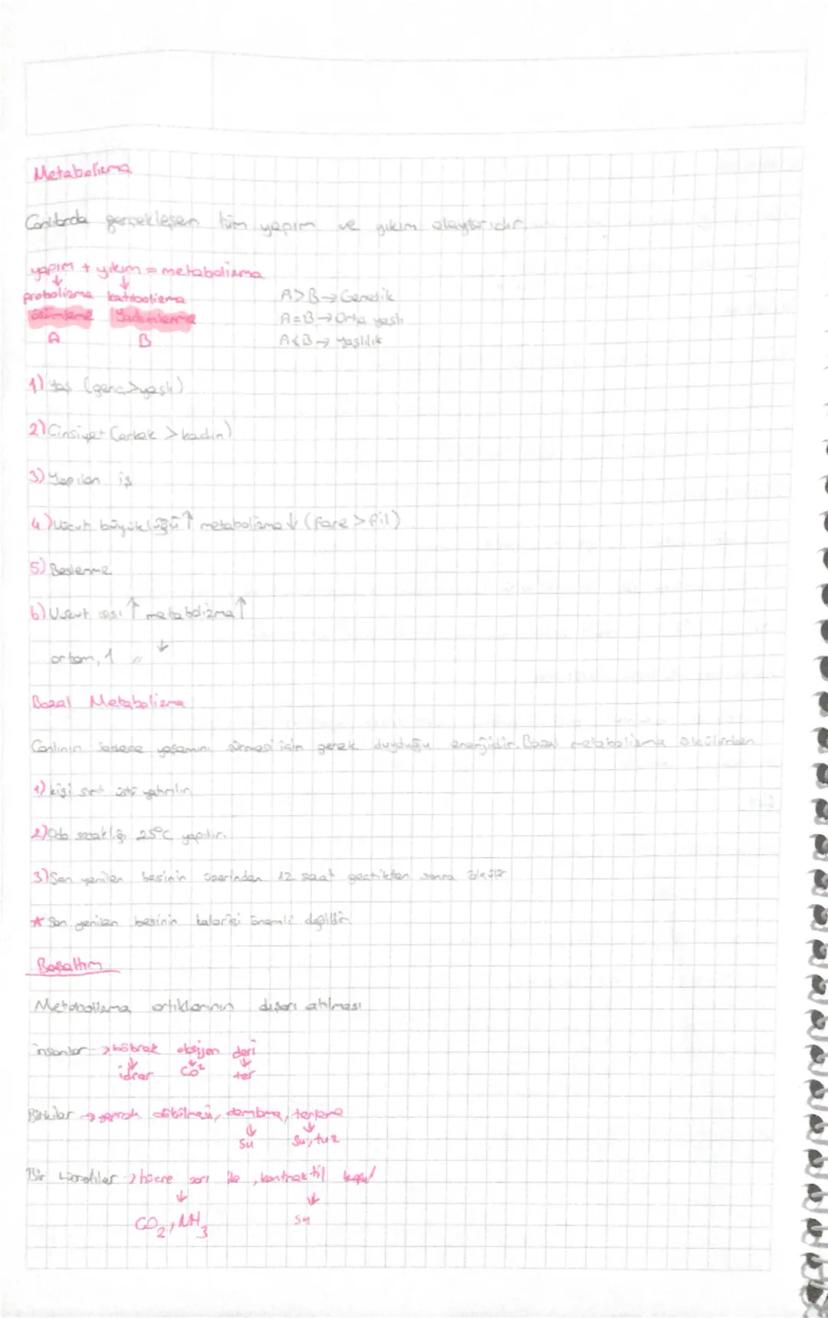 Metabolizma
Canlılarda gerçekleşen tüm yapım ve yıkım olaylarıdır.
yapım + yıkım = metabolizma
↓ ↓
katabolizma
özümleme Yadımlama
A B
A>B → Gençlik
A=B → Orta yaşlı
A<B → Yaşlılık
1) Yaş (genç>yaşlı)
2) Cinsiyet (erkek > kadın)
3) Yapılan iş
4) Vücut büyüklüğü ↑ metabolizma ↓ (fare > fil)
5) Beslenme
6) Vücut ısısı ↑ metabolizma ↑
ortam, ↑ " ↓
Bazal Metabolizma
Canlının sadece yaşamını sürmesi için gerek duyduğu enerjidir. Bazal metabolizma
1) kişi sırt üstü
2) Oda sıcaklığı 25°C yapılır.
3) Son yenilen besinin üzerinden 12 saat geçtikten sonra
* Son yenilen besinin kalorisi önemli değildir
Boşaltım
Metabolizma artıklarının dışarı atılması
insanlar → böbrek oksijen deri
↓ ↓ ↓
idrar CO² ter
Bitkiler → yaprak dökülmesi, damlama, terleme
↓ ↓
su su, tuz
Bir hücreliler → hücre zarı ile, kontraktil koful
↓ ↓
CO₂, NH₃ su